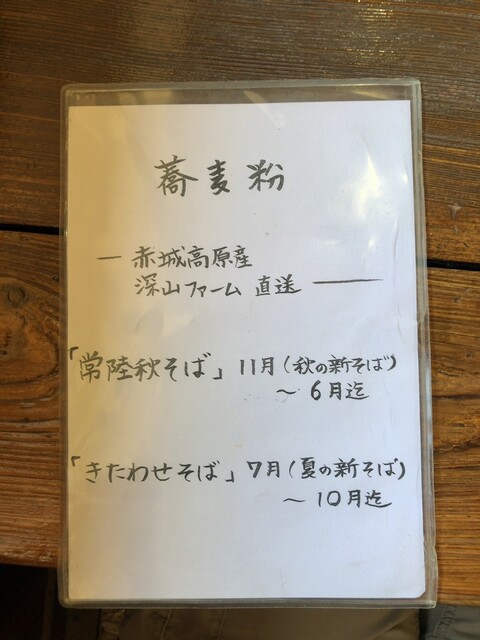 蕎麦粉
― 赤城高原産
深山ファーム 直送 ―
「常陸秋そば」 11月(秋の新そば)
～ 6月迄
「きたわせそば」 7月(夏の新そば)
～ 10月迄